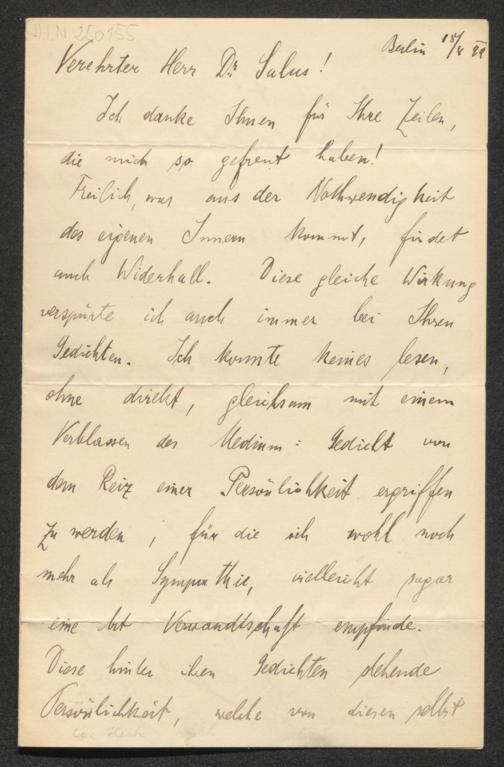 DLN 250155
Berlin 18/X 99
Verehrter Herr Dr Salus!
Ich danke Ihnen für Ihre Zeilen,
die mich so gefreut haben!
Freilich, was aus der Nothwendigkeit
des eigenen Innern kommt, findet
auch Widerhall. Diese gleiche Wirkung
verspürte ich auch immer bei Ihren
Gedichten. Ich konnte keines lesen,
ohne direkt, gleichsam mit einem
Verblassen des Medium: Gedicht von
dem Reiz einer Persönlichkeit ergriffen
zu werden, für die ich wohl noch
mehr als Sympathie, vielleicht sogar
eine Art Verwandtschaft empfinde.
Diese hinter ihren Gedichten stehende
Persönlichkeit, welche von diesen selbst